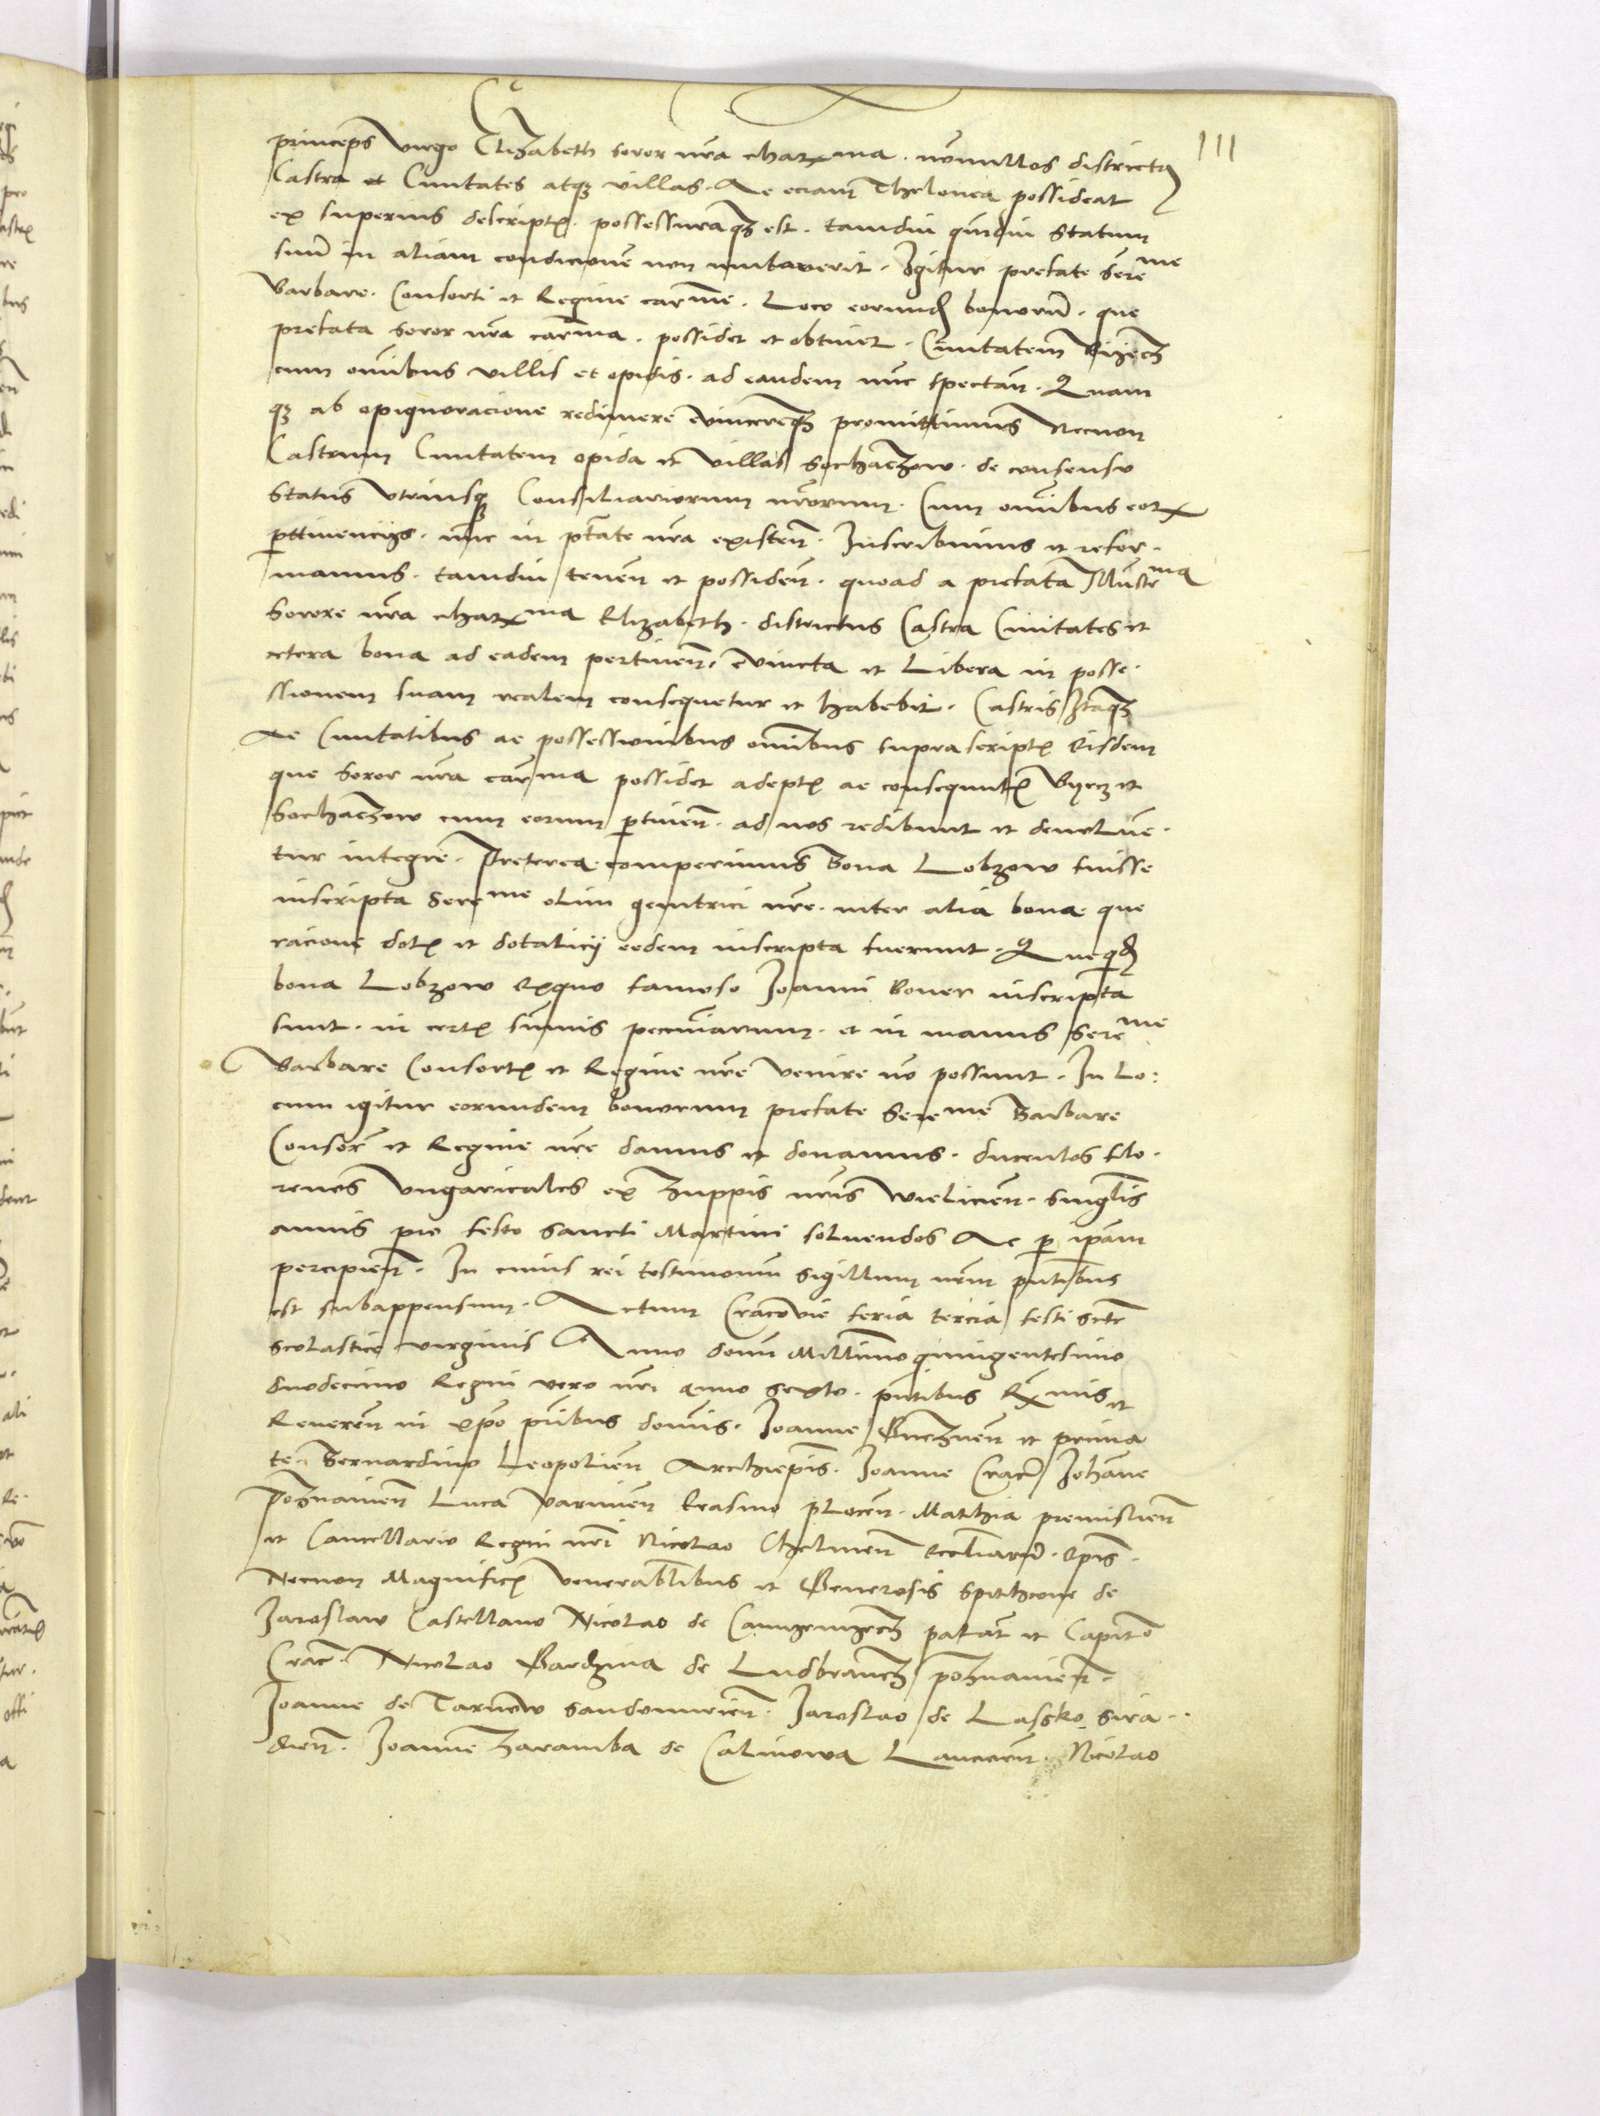 111
princeps virgo Elizabeth soror nr̃a charma . nōnullos districtus
Castra et Civitates atqȝ villas . Ac eciam Thelonea possideat
ex superius descriptꝭ . possessuraqȝ est . tamdiu quādiu Statum
suũ in aliam condicionẽ non mutaverit . Igitur prefate Sereme
Barbare . Consorti et Regine carme . Loco eorundꝭ bonorũ . que
prefata soror nr̃a carma . possidet et obtinet . Civitatem Biyecz
cum omĩbus villis et opidis . ad eandem nũc spectañ . Quam
qȝ ab opignoracione redimere evincereqȝ promittimus Necnon
Castrum Civitatem opida et villas Sochaczow . de consensu
status utriusqȝ Consiliariorum nr̃orum . Cum omĩbus eoꝝ
ꝑtinencijs . nũc in ptãte nr̃a existeñ . Inscribimus et refor-
mamus . tamdiu teneñ et possideñ . quoad a prefata Illustrma
Sorore nr̃a charma Elizabeth . districtus Castra Civitates et
cetera bona ad eadem pertineñ . evincta et Libera in posse-
ssionem suam realem consequetur et habebit . Castris Itaqȝ
Ac Civitatibus ac possessionibus omĩbus supra scriptꝭ eisdem
que soror nr̃a carma possidet adeptꝭ ac consequutꝭ Byecz et
Sochaczow cum eorum ꝑtineñ . ad nos redibunt et devoluẽ-
tur integre . Preterea comperimus Bona Lobzow fuisse
inscripta Sereme olim genitrici nr̃e . inter alia bona que
racione dotꝭ et dotalicij eedem inscripta fuerunt . Que qꝫdꝭ
bona Lobzow exquo famoso Joanni Boner inscripta
sunt . in certꝭ sũmis pecuniarum . et in manus Sereme
Barbare Consortꝭ et Regine nr̃e venire nō possunt . In Lo-
cum igitur eorundem bonorum prefate Sereme Barbare
Consorti et Regine nr̃e damus et donamus . ducentos flo-
renos Vngaricales ex Zuppis nr̃is Wielicieñ . singulis
annis pro festo Sancti Martini solvendos Ac ꝑ ipãm
percipieñ . In cuius rei testimoniũ sigillum nr̃m pñtibus
est subappensum . Actum Cracovie feria tercia festi Sctẽ
Scolastice virginis Anno domĩ Millimo quingentesimo
duodecimo Regni vero nr̃i anno sexto . pñtibus Rmis et
Revereñ in xp̃o pr̃ibus domĩs . Joanne Gneznẽn et prima
te . Bernardino Leopolieñ Archiepis . Joanne Cracõ Johãne
Poznanieñ Luca Varmieñ Erasmo plocẽn . Matthia premislieñ
et Cancellario Regni nr̃i Nicolao Chelmeñ ecclĩarũ . epis .
Necnon Magnificꝭ venerabilibus et Generosis Spitkone de
Jaroslaw Castellano Nicolao de Camyenyecz palat et Capit̃o
Crac . Nicolao Gardzina de Ludbrancz poznanieñ .
Joanne de Tarnow Sandomirieñ . Jaroslao de Lassko Sira-
dieñ . Joanne Zaramba de Calinowa Lancicieñ . Nicolao